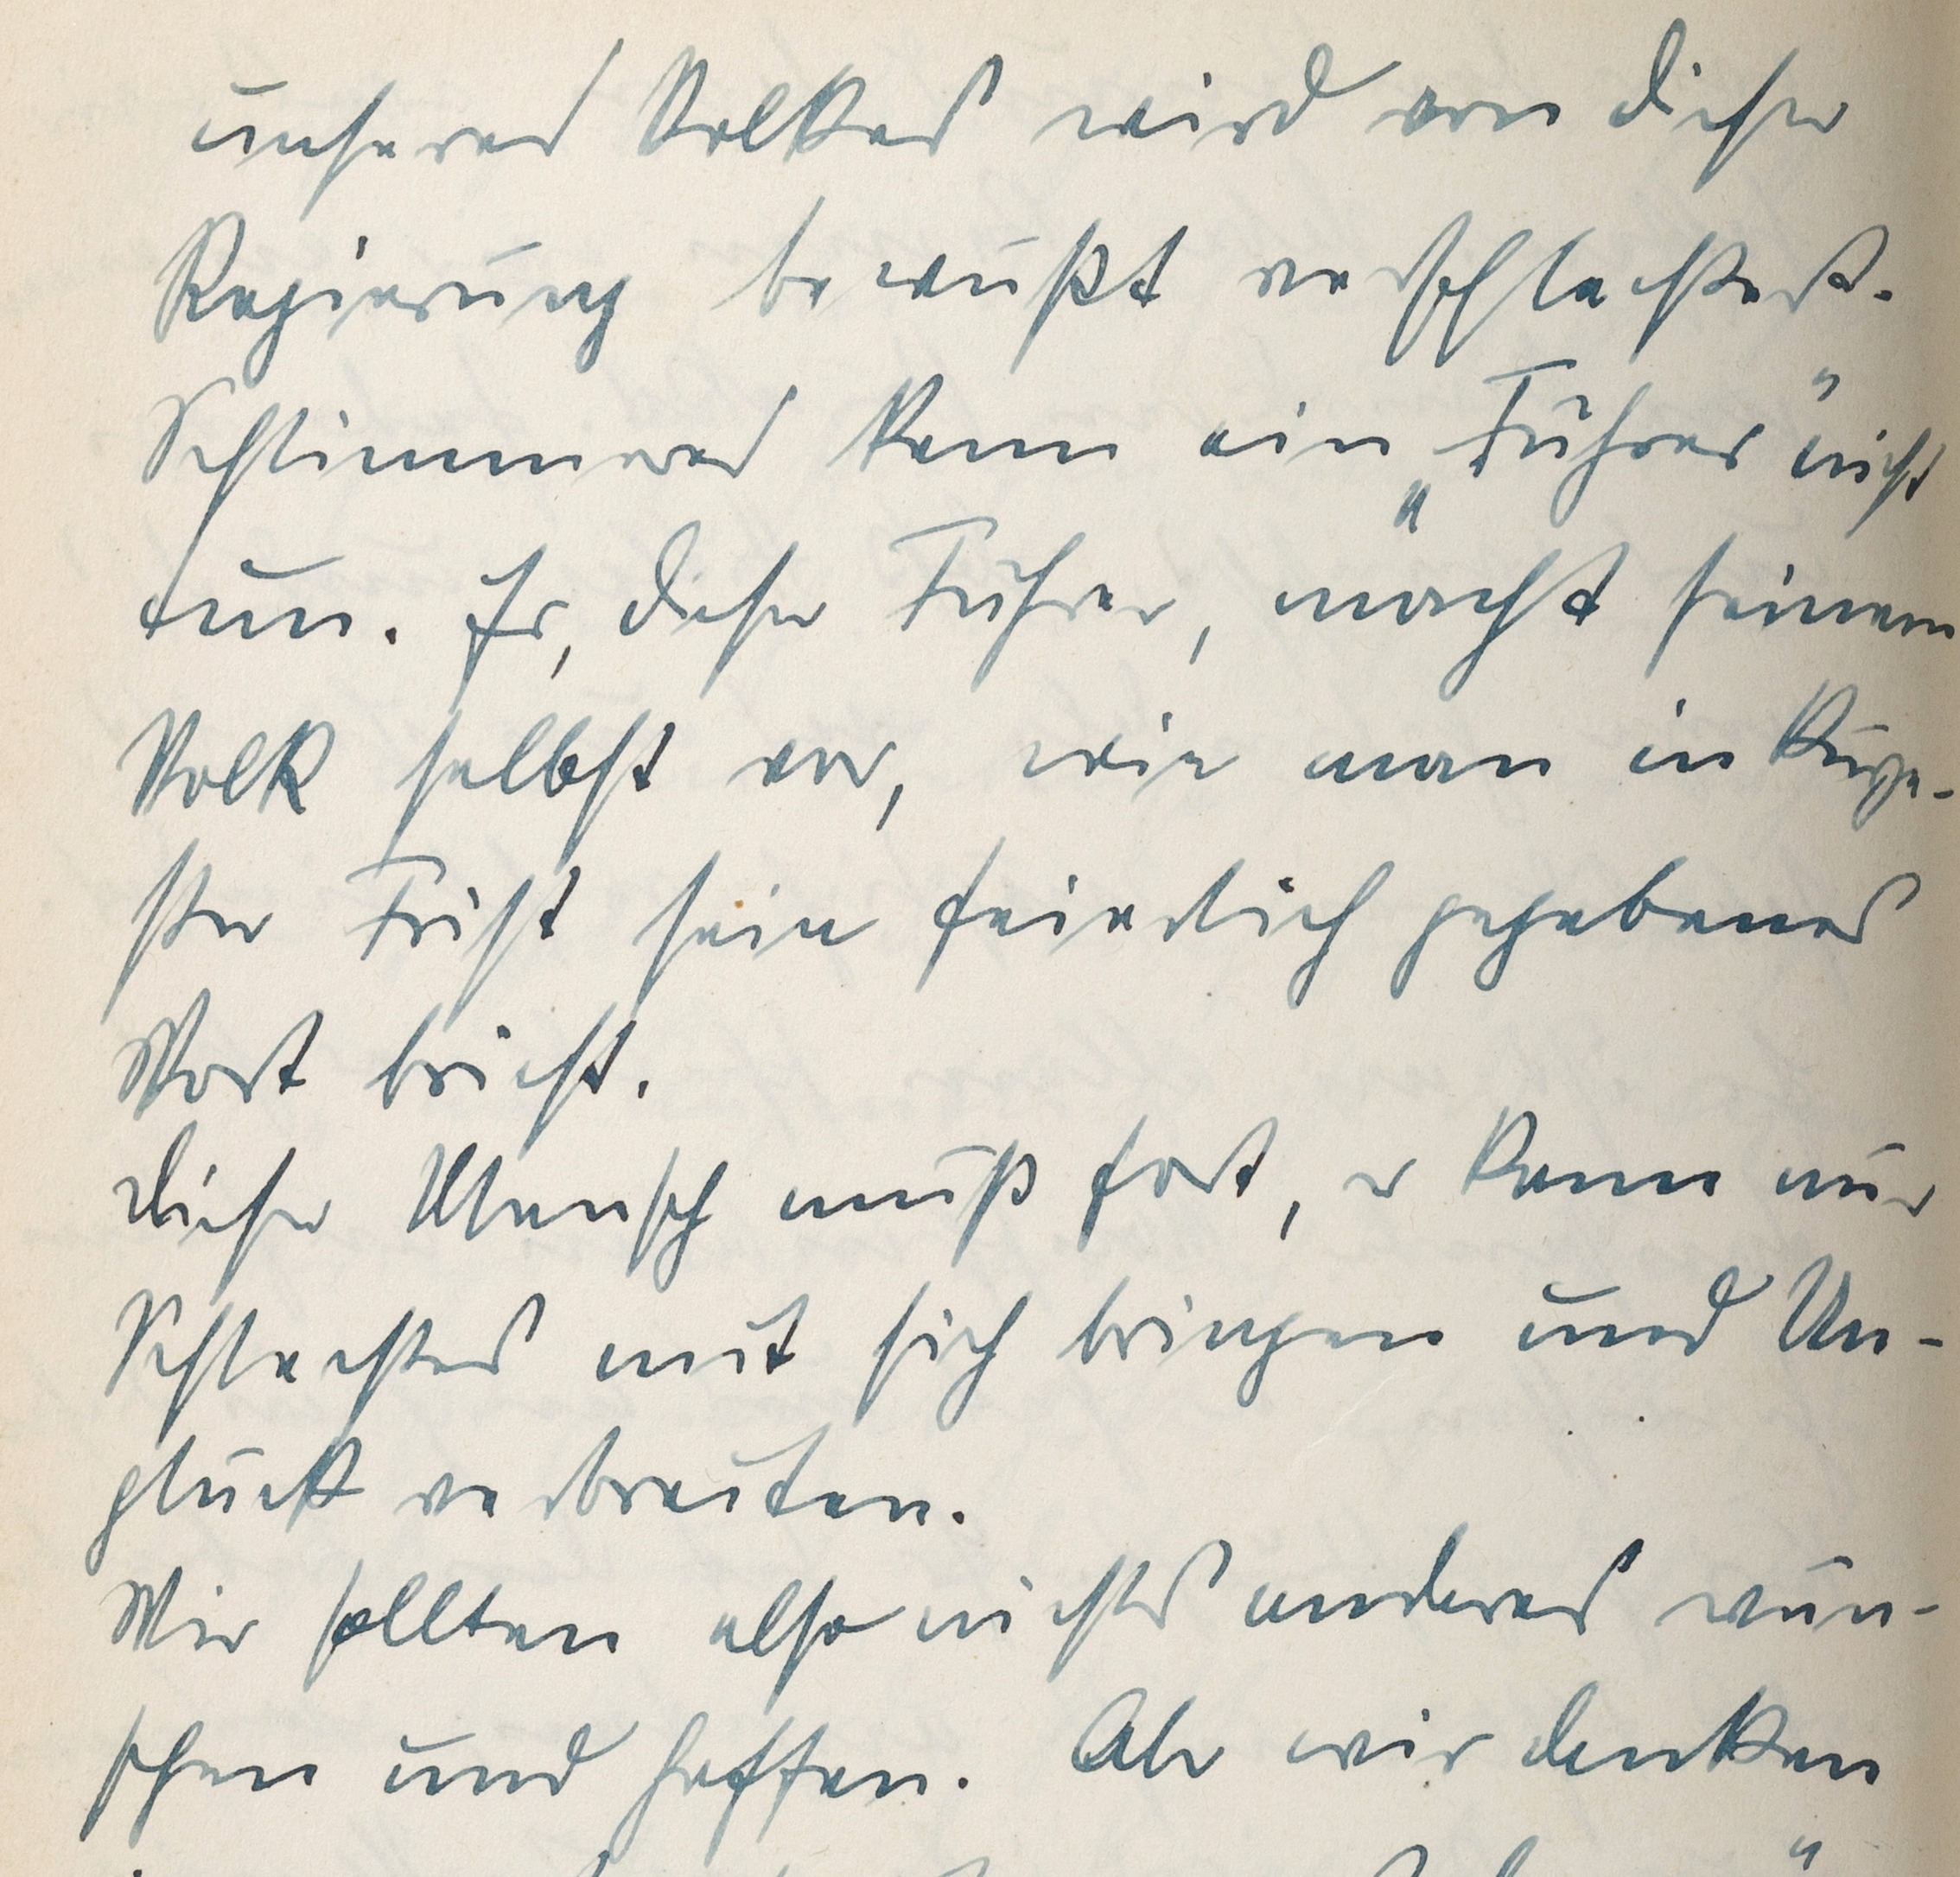 unseres Volkes wird von dieser
Regierung bewußt verschlechtert.
Schlimmeres kann ein „Führer" nicht
tun. Er, dieser Führer, macht seinem
Volk selbst vor, wie man in kürze-
ster Frist sein feierlich gegebenes
Wort bricht.
Dieser Mensch muß fort, er kann nur
Schlechtes mit sich bringen und Un-
glück verbreiten.
Wir sollten also nichts anderes wün-
schen und hoffen. Aber wir denken